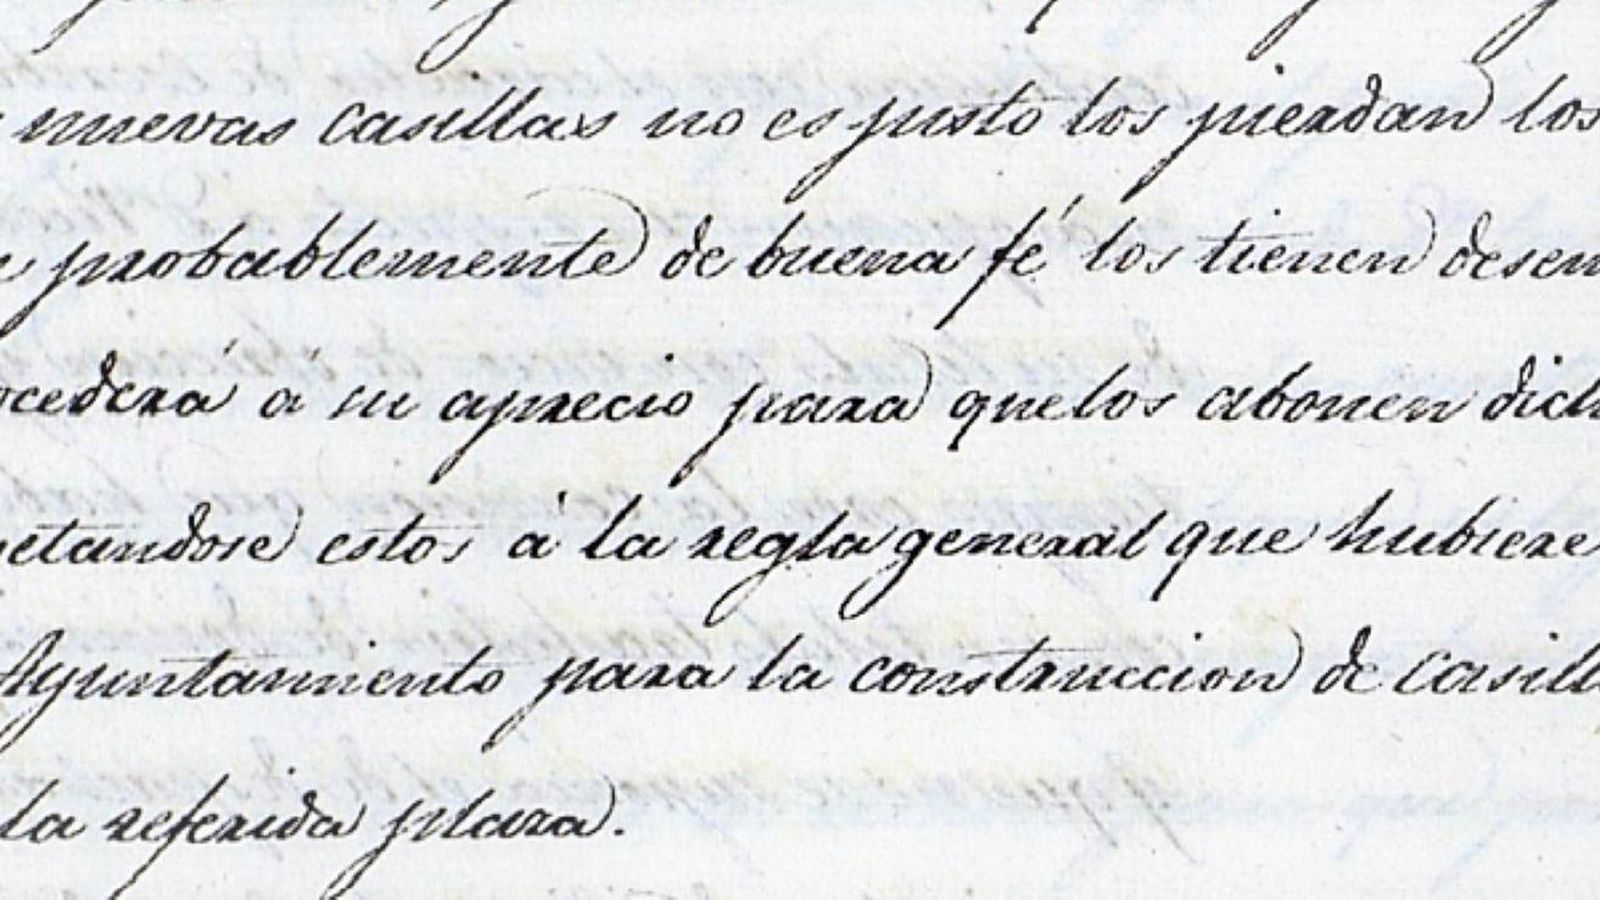 nuevas casillas no es justo los pierdan los
probablemente de buena fé los tienen desem
ocederá á su aprecio para que los abonen dich
etandose estos á la regla general que hubiere
Ayuntamiento para la construccion de casill
la referida plaza.